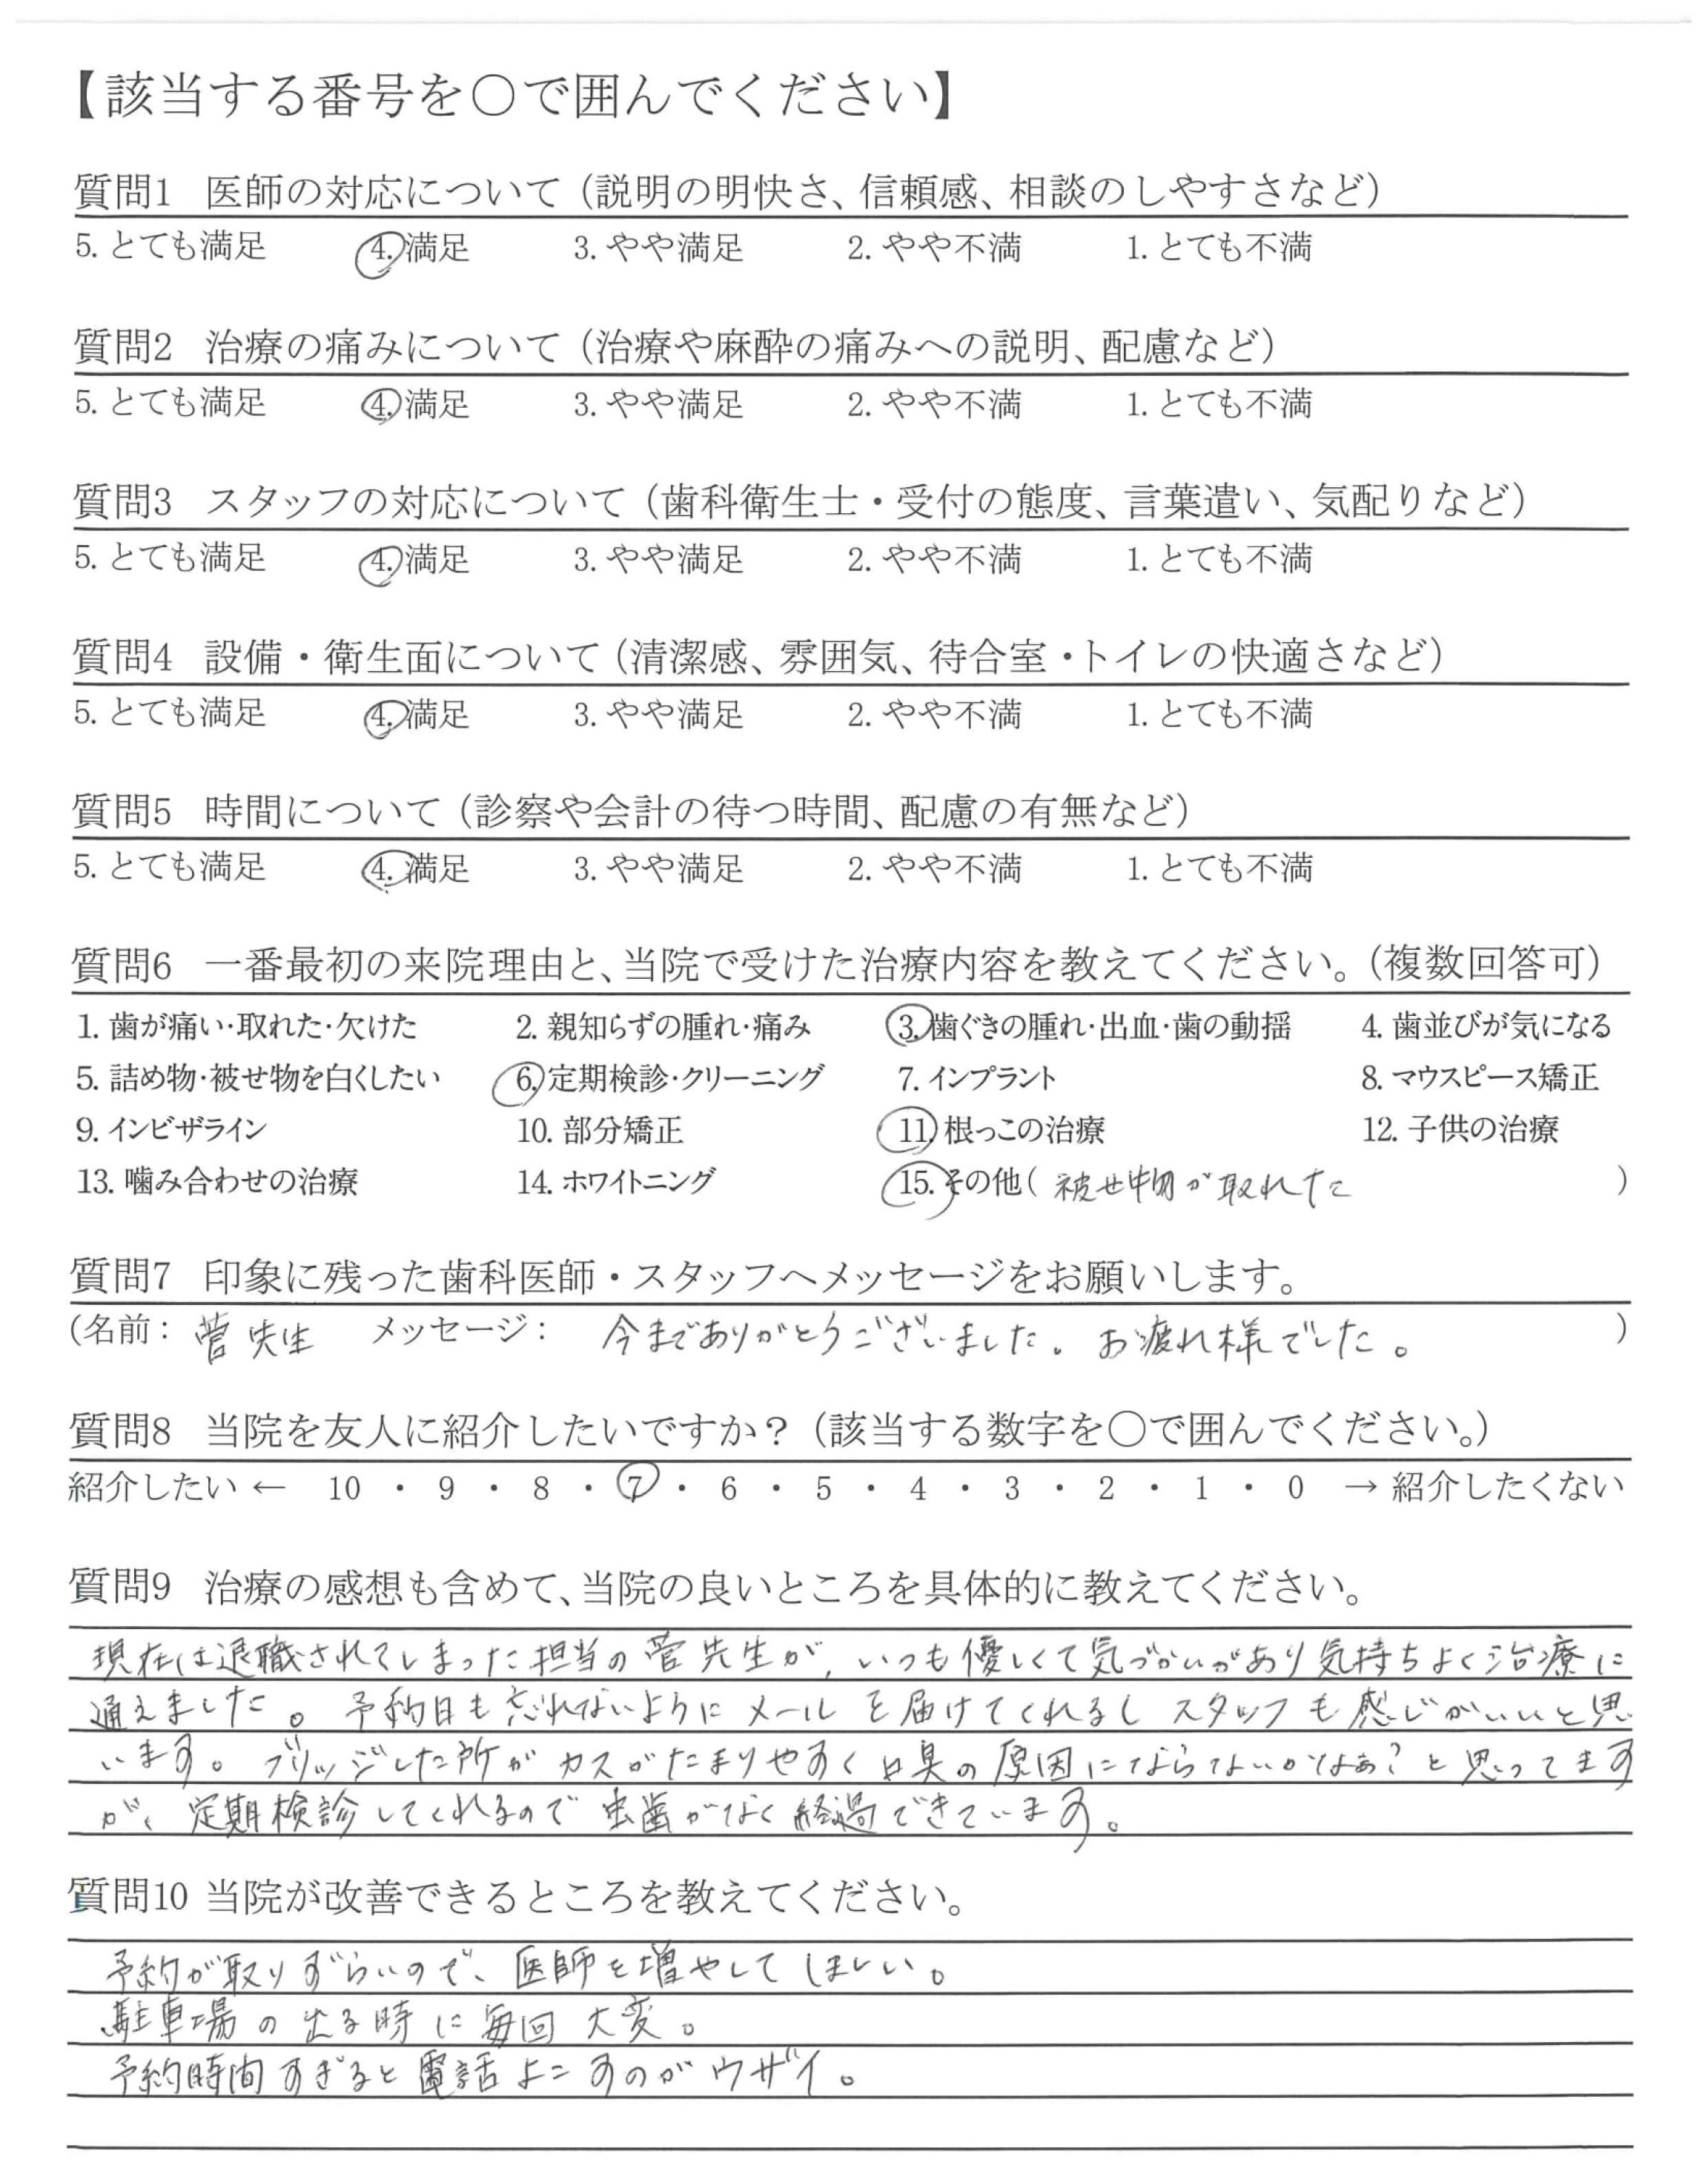 【該当する番号を○で囲んでください】
質問1 医師の対応について（説明の明快さ、信頼感、相談のしやすさなど）
5. とても満足 4. 満足 3. やや満足 2. やや不満 1. とても不満
質問2 治療の痛みについて（治療や麻酔の痛みへの説明、配慮など）
5. とても満足 4. 満足 3. やや満足 2. やや不満 1. とても不満
質問3 スタッフの対応について（歯科衛生士・受付の態度、言葉遣い、気配りなど）
5. とても満足 4. 満足 3. やや満足 2. やや不満 1. とても不満
質問4 設備・衛生面について（清潔感、雰囲気、待合室・トイレの快適さなど）
5. とても満足 4. 満足 3. やや満足 2. やや不満 1. とても不満
質問5 時間について（診察や会計の待つ時間、配慮の有無など）
5. とても満足 4. 満足 3. やや満足 2. やや不満 1. とても不満
質問6 一番最初の来院理由と、当院で受けた治療内容を教えてください。（複数回答可）
1. 歯が痛い・取れた・欠けた 2. 親知らずの腫れ・痛み 3. 歯ぐきの腫れ・出血・歯の動揺 4. 歯並びが気になる
5. 詰め物・被せ物を白くしたい 6. 定期検診・クリーニング 7. インプラント 8. マウスピース矯正
9. インビザライン 10. 部分矯正 11. 根っこの治療 12. 子供の治療
13. 噛み合わせの治療 14. ホワイトニング 15. その他（ 被せ物が取れた ）
質問7 印象に残った歯科医師・スタッフへメッセージをお願いします。
（名前： 菅先生 メッセージ： 今までありがとうございました。お疲れ様でした。 ）
質問8 当院を友人に紹介したいですか？（該当する数字を○で囲んでください。）
紹介したい ← 10 ・ 9 ・ 8 ・ 7 ・ 6 ・ 5 ・ 4 ・ 3 ・ 2 ・ 1 ・ 0 → 紹介したくない
質問9 治療の感想も含めて、当院の良いところを具体的に教えてください。
現在は退職されてしまった担当の菅先生が、いつも優しくて気づかいがあり気持ちよく治療に
通えました。予約日も忘れないようにメールを届けてくれるしスタッフも感じがいいと思
います。ブリッジした所がカスがたまりやすく口臭の原因にならないかなぁ？と思ってます
が、定期検診してくれるので虫歯がなく経過できています。
質問10 当院が改善できるところを教えてください。
予約が取りずらいので、医師を増やしてほしい。
駐車場の出る時に毎回大変。
予約時間すぎると電話よこすのがウザイ。